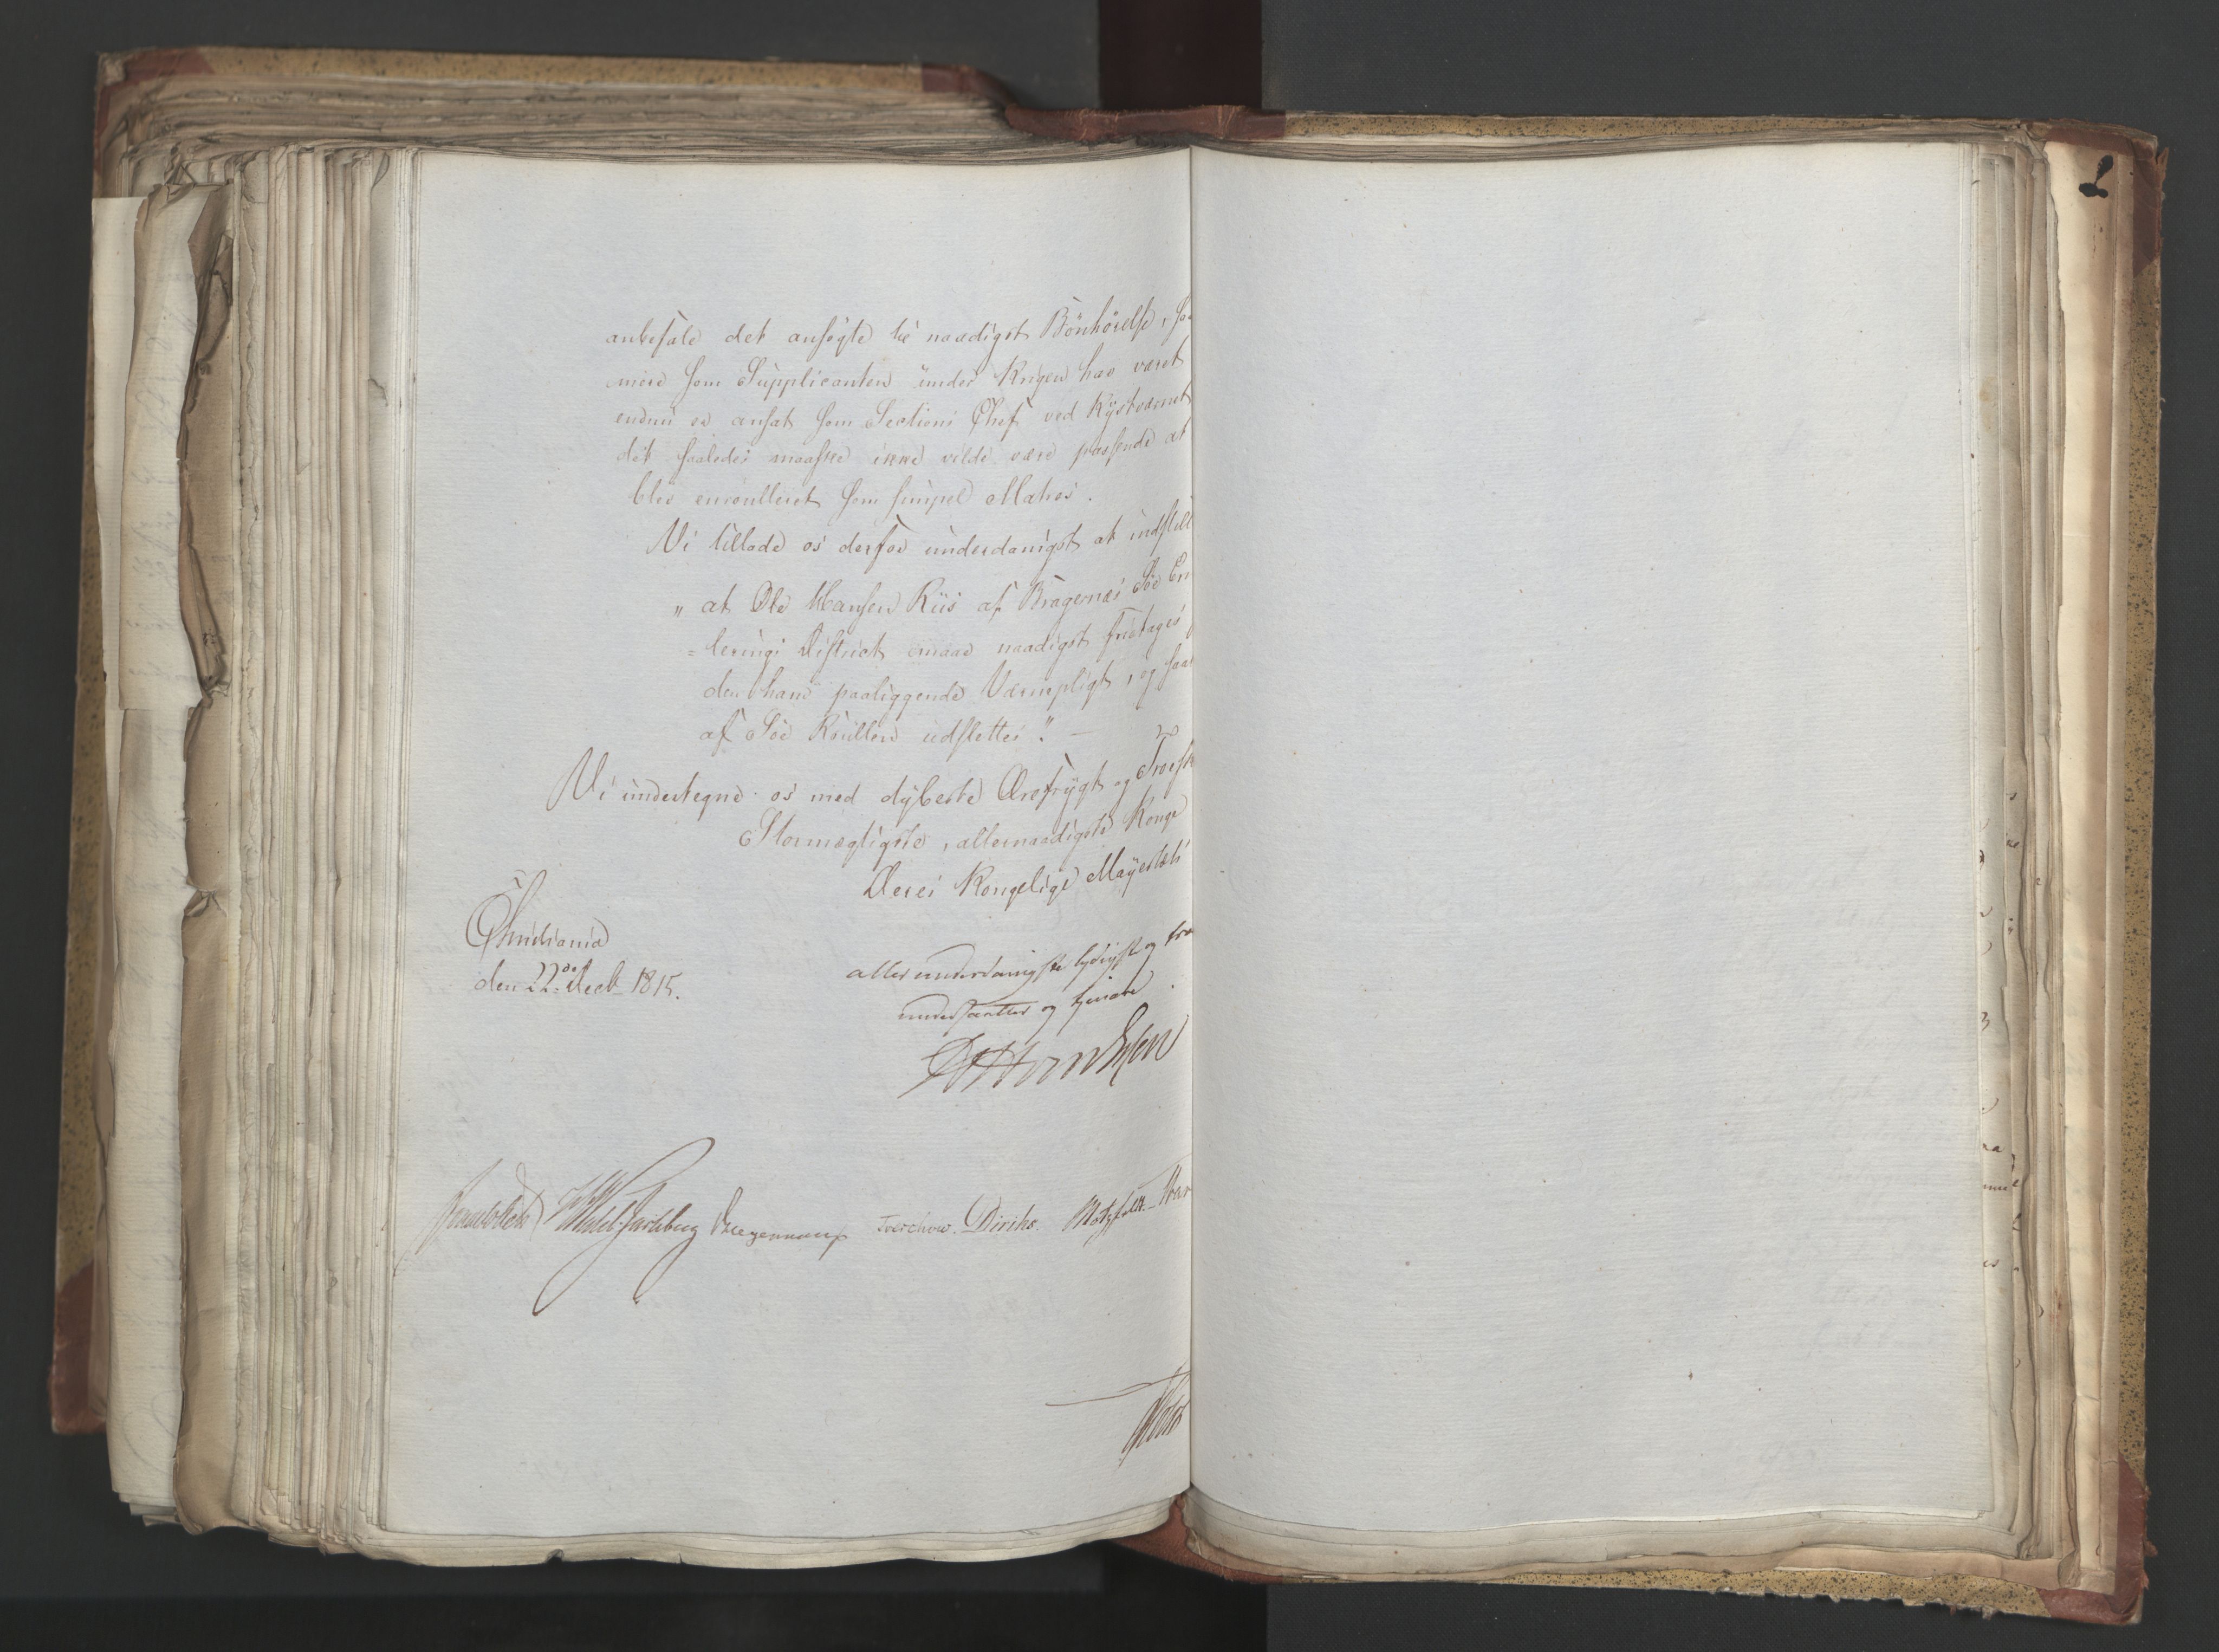 anbefale det ansøgte til naadigst Bönhörelse, saa
mere som Supplicanten under Krigen har været
endnu er ansat som Sections Chef ved Kÿstværnet
det saaledes maaskee ikke vilde være passende at
blev enroulleret som simpel Matros.
Vi tillade os derfor underdanigst at indstille
„ at Ole Hansen Riis af Bragernæs Söe En
=lerings District maae naadigst fritages
den ham paaliggende Værnepligt, og saa
af Söe Roullen udslettes." —
Vi undertegne os med dÿbeste Ærefrÿgt og Troesk
Stormægtigste, allernaadigste Konge
Deres Kongelige Mayestæts
Christiania
den 22de Decb 1815.
allerunderdanigste lydigste og tro
undersaatter og tjenere.
Fasting
Wedel-Jarlsberg Krogemann Treschow. Diriks. Motzfeldt.